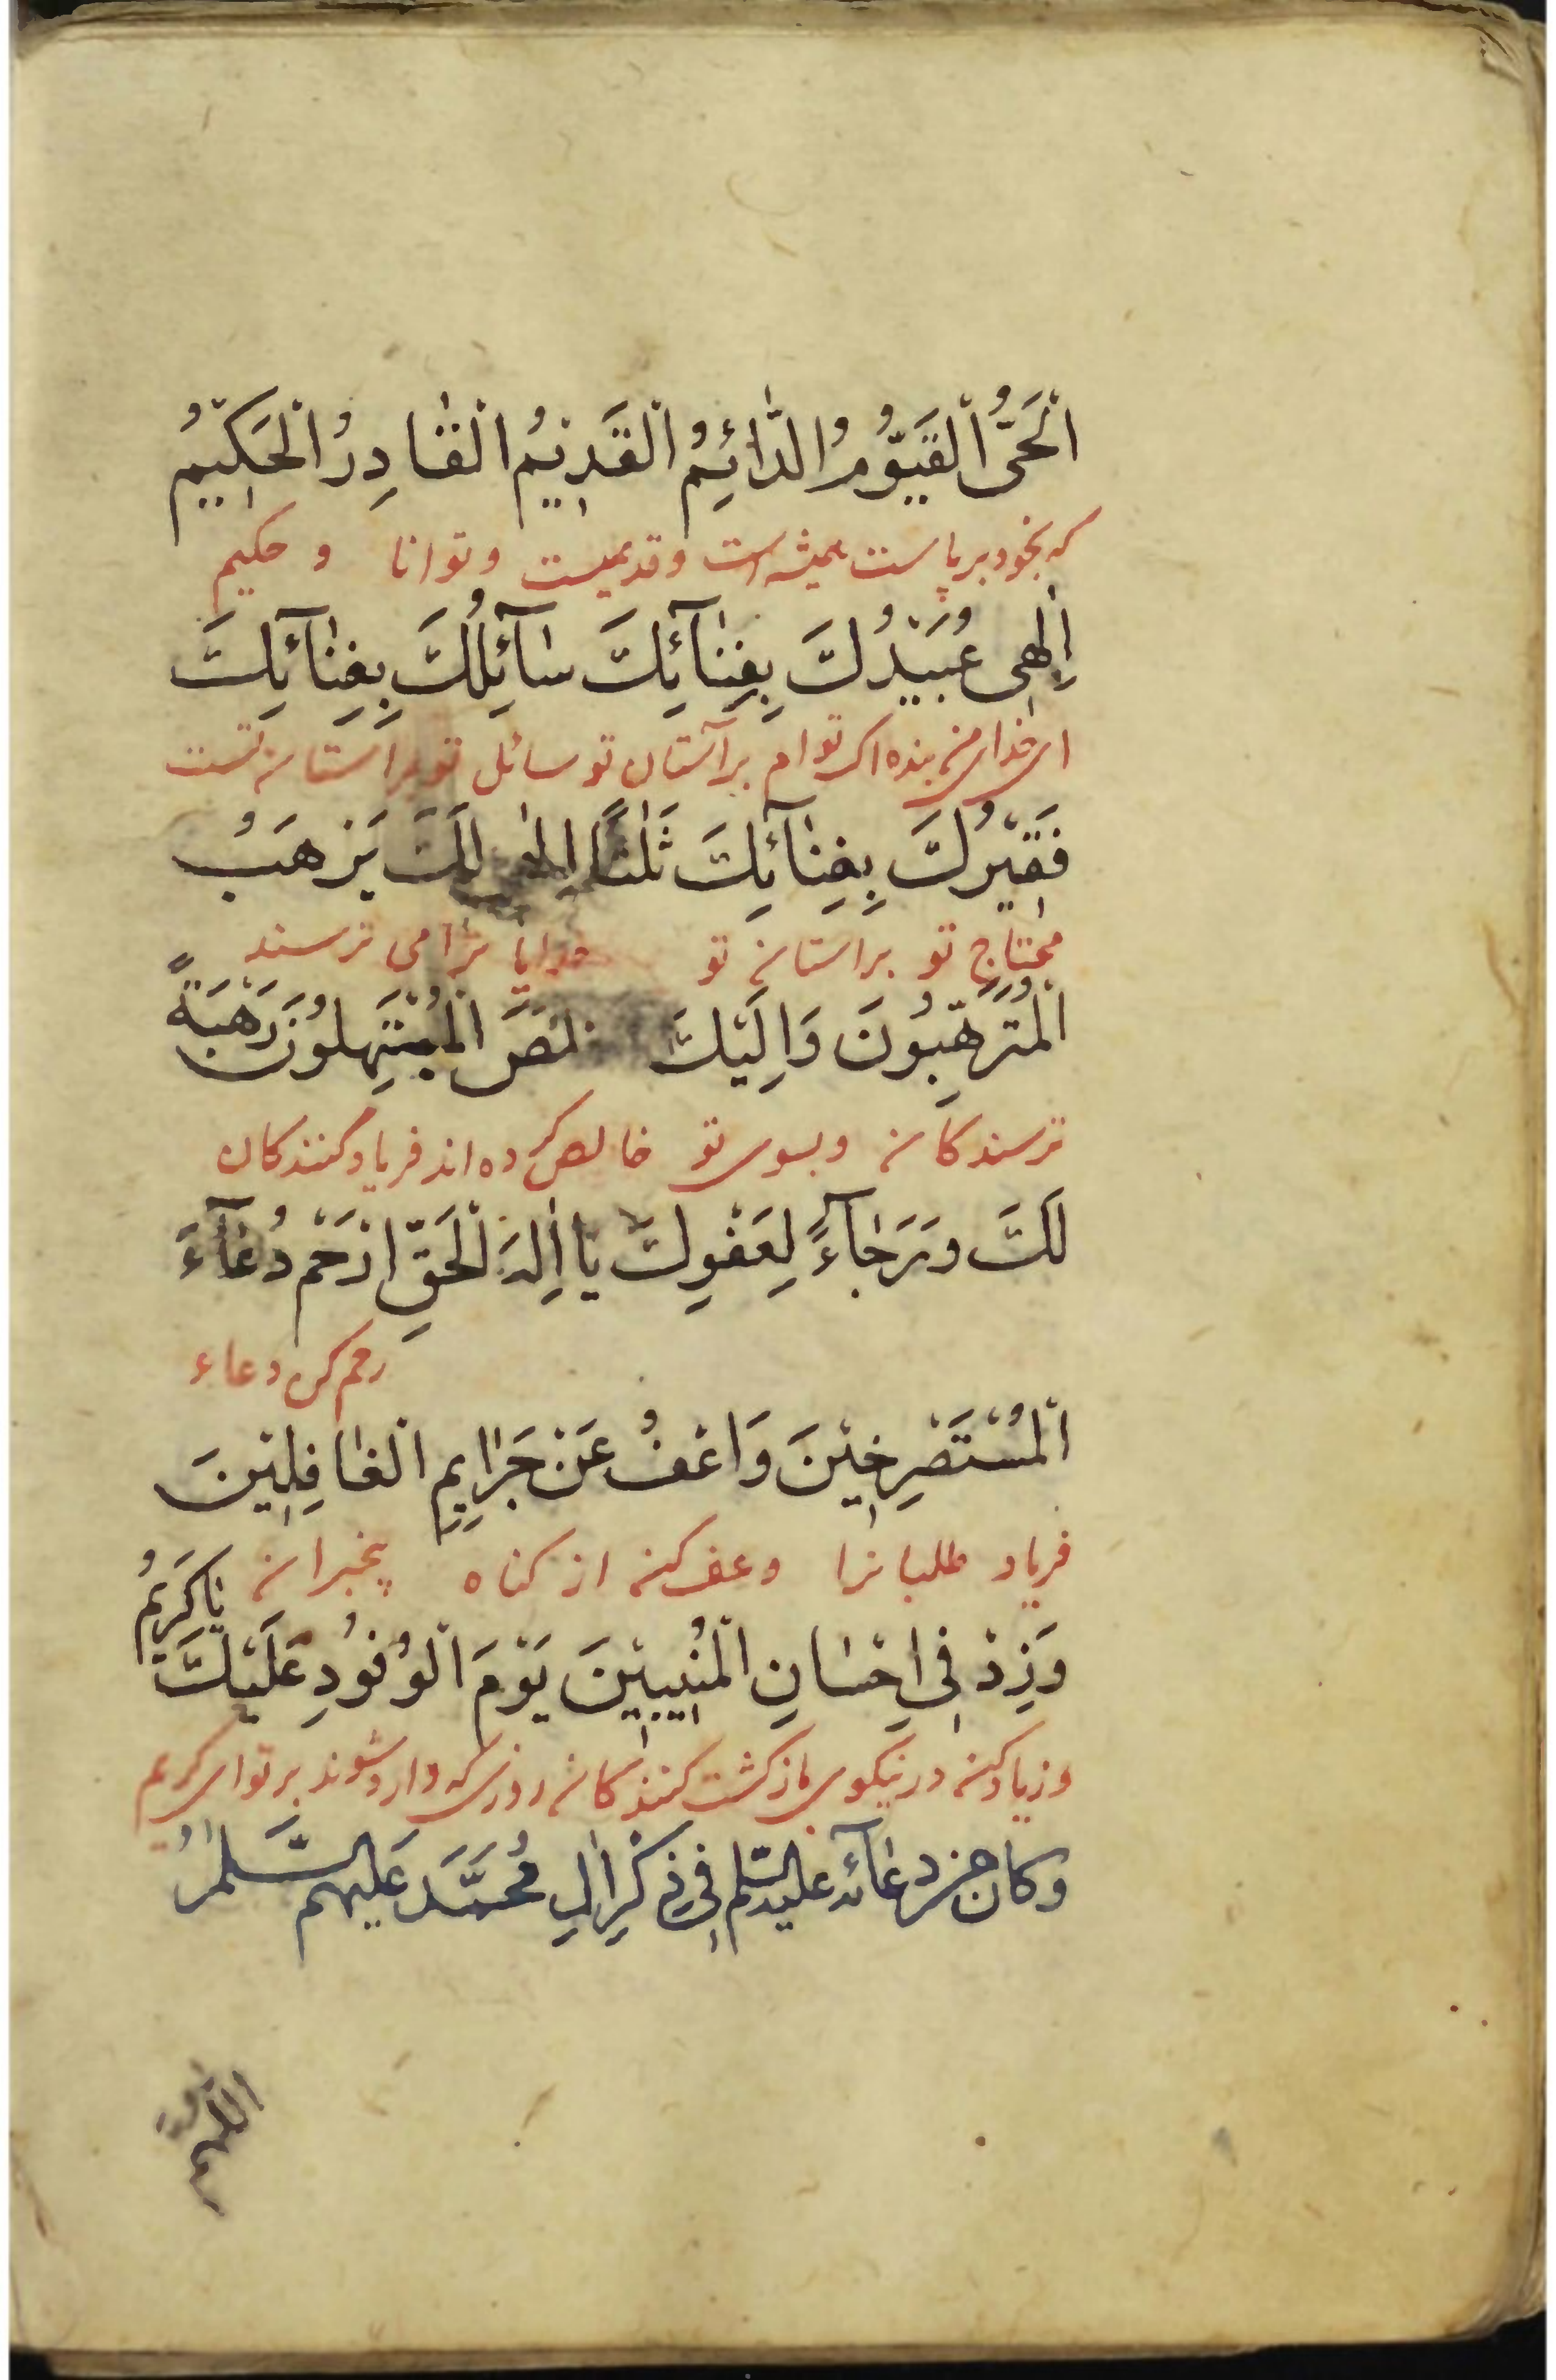 اَلْحَىُّ الْقَيُّوْمُ الدَّائِمُ الْقَدِيْمُ الْقَادِرُ الْحَكِيْمُ
که بخود برپاست همیشه است وقدیمست وتوانا و حکیم
اِلٰهِى عُبَيْدُكَ بِفِنَآئِكَ سَآئِلُكَ بِفِنَآئِكَ
ای خدای من بنده اک توام برآستان تو سائل تو براستانه تست
فَقِيْرُكَ بِفِنَآئِكَ ثَلٰثًا اِلٰهى لَكَ يَرْهَبُ
محتاج تو براستانه تو خدایا ترا می ترسند
الْمُتَرَهِّبُوْنَ وَاِلَيْكَ خْلَصَ الْمُبْتَهِلُوْنَ رَهْبَةً
ترسندکانه وبسوی تو خالص کرده اند فریاد کنندکان
لَكَ وَرَجَآءً لِعَفْوِكَ يَا اِلٰهَ الْحَقِّ ارْحَمْ دُعَآءَ
رحم کن دعاء
الْمُسْتَصْرِخِيْنَ وَاعْفُ عَنْ جَرَايِمِ الْغَافِلِيْنَ
فریاد طلبانرا وعف کنه از کناه بیخبرانه
يَا كَرِيْمُ
وَزِدْ فِى اِحْسَانِ الْمُنِيْبِيْنَ يَوْمَ الْوُفُوْدِ عَلَيْكَ
وزیاد کنه در نیکوی بازکشت کنندکانه روزی که وارد شوند بر توای کریم
وكان من دعآئه عليه السّلم فِى ذِكْرِ اٰلِ مُحَمَّدَ عَلَيْهِم السَّلٰمُ
اللهم